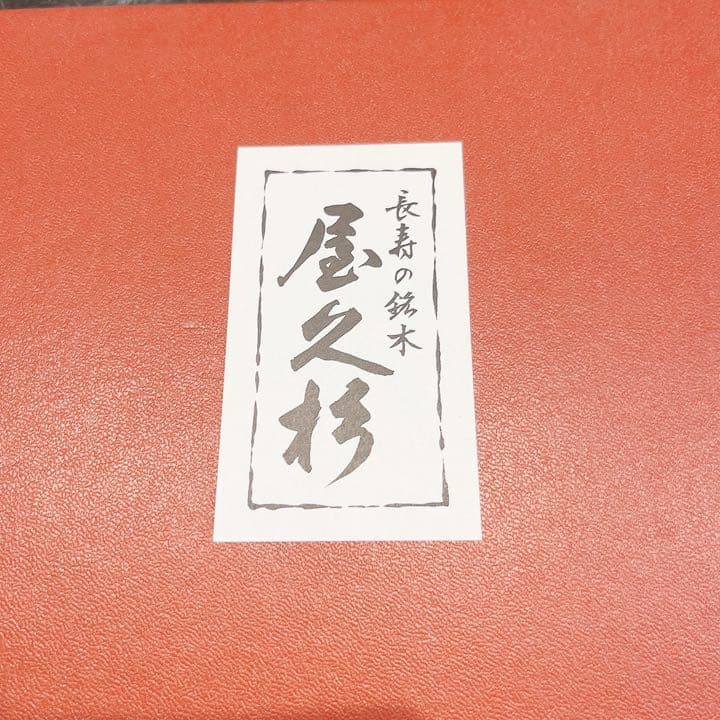 長寿の銘木
屋久杉